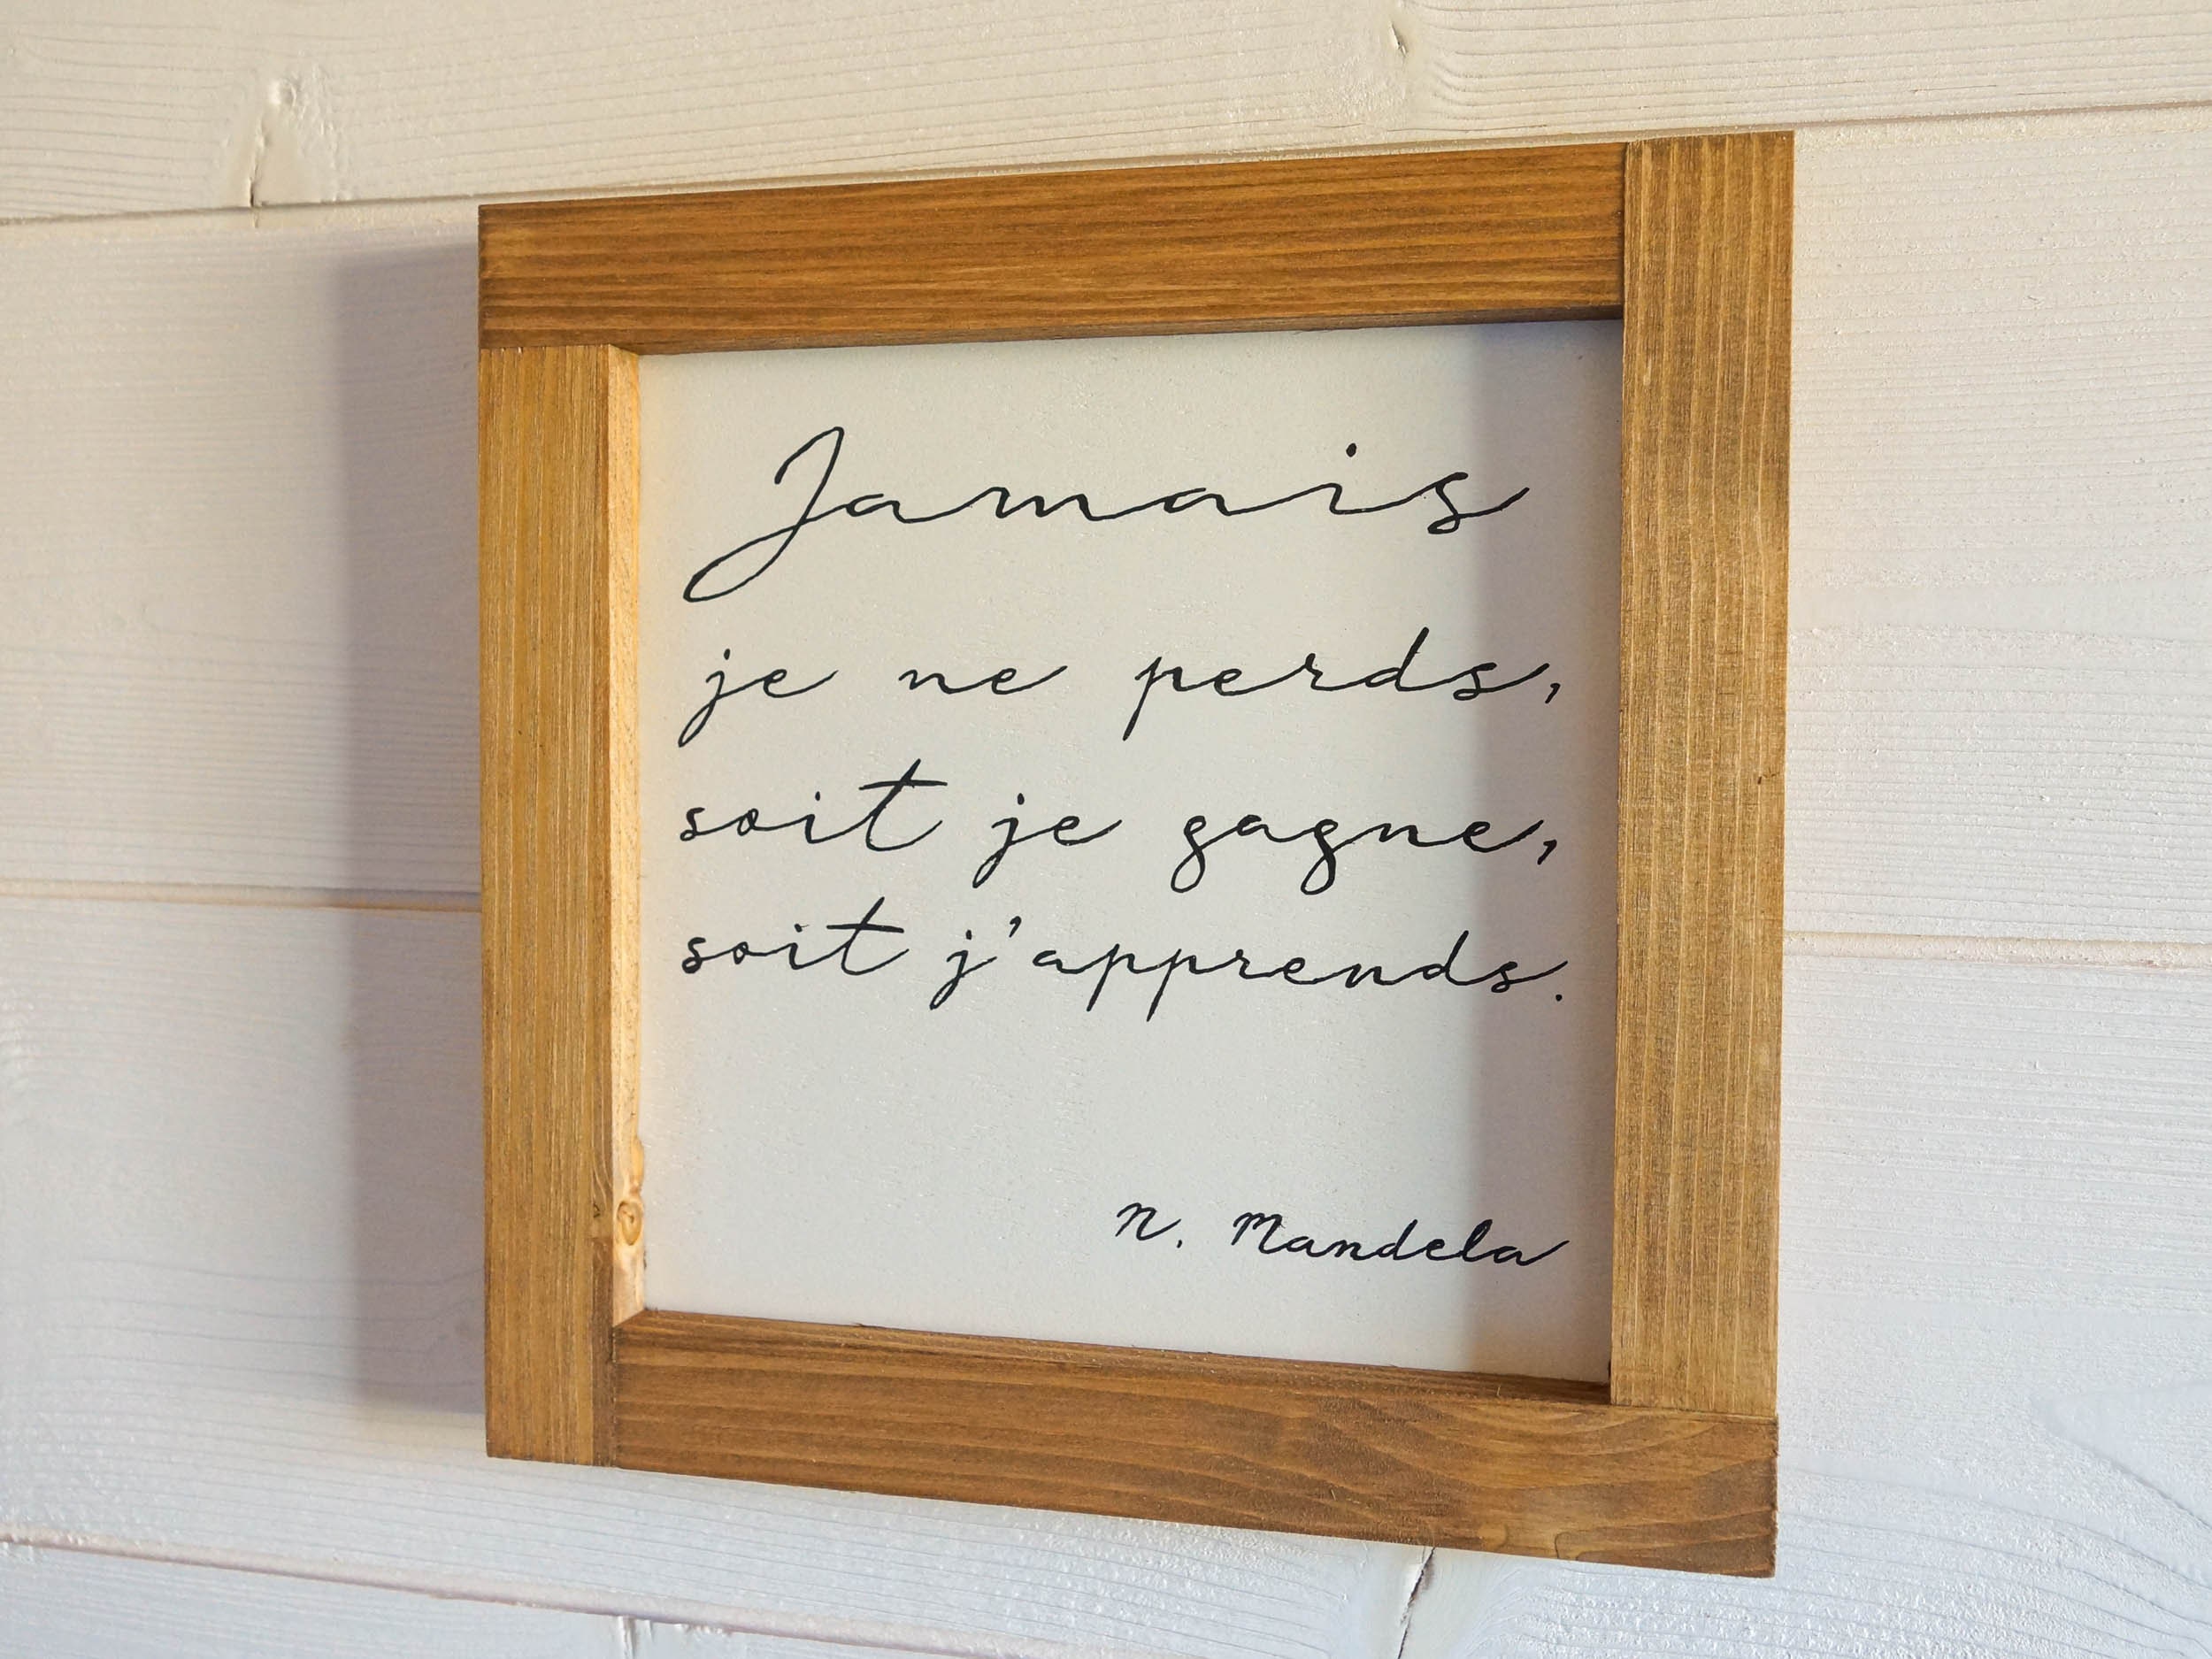 Jamais
je ne perds,
soit je gagne,
soit j'apprends.
N. Mandela